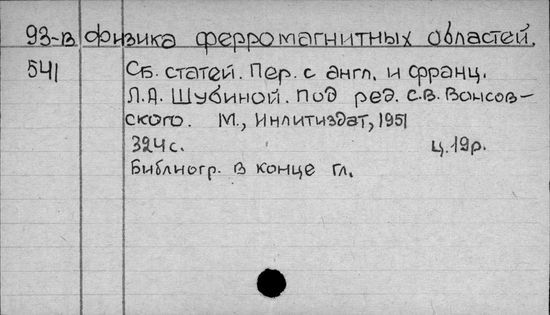 93-в Физика ферромагнитных областей.
541 Сб. статей. Пер. с англ. и франц.
Л.А. Шубиной. Под ред. С.В. Вонсов-
ского. М., Инлитиздат, 1951
324 с. ц. 19 р.
Библиогр. в конце гл.